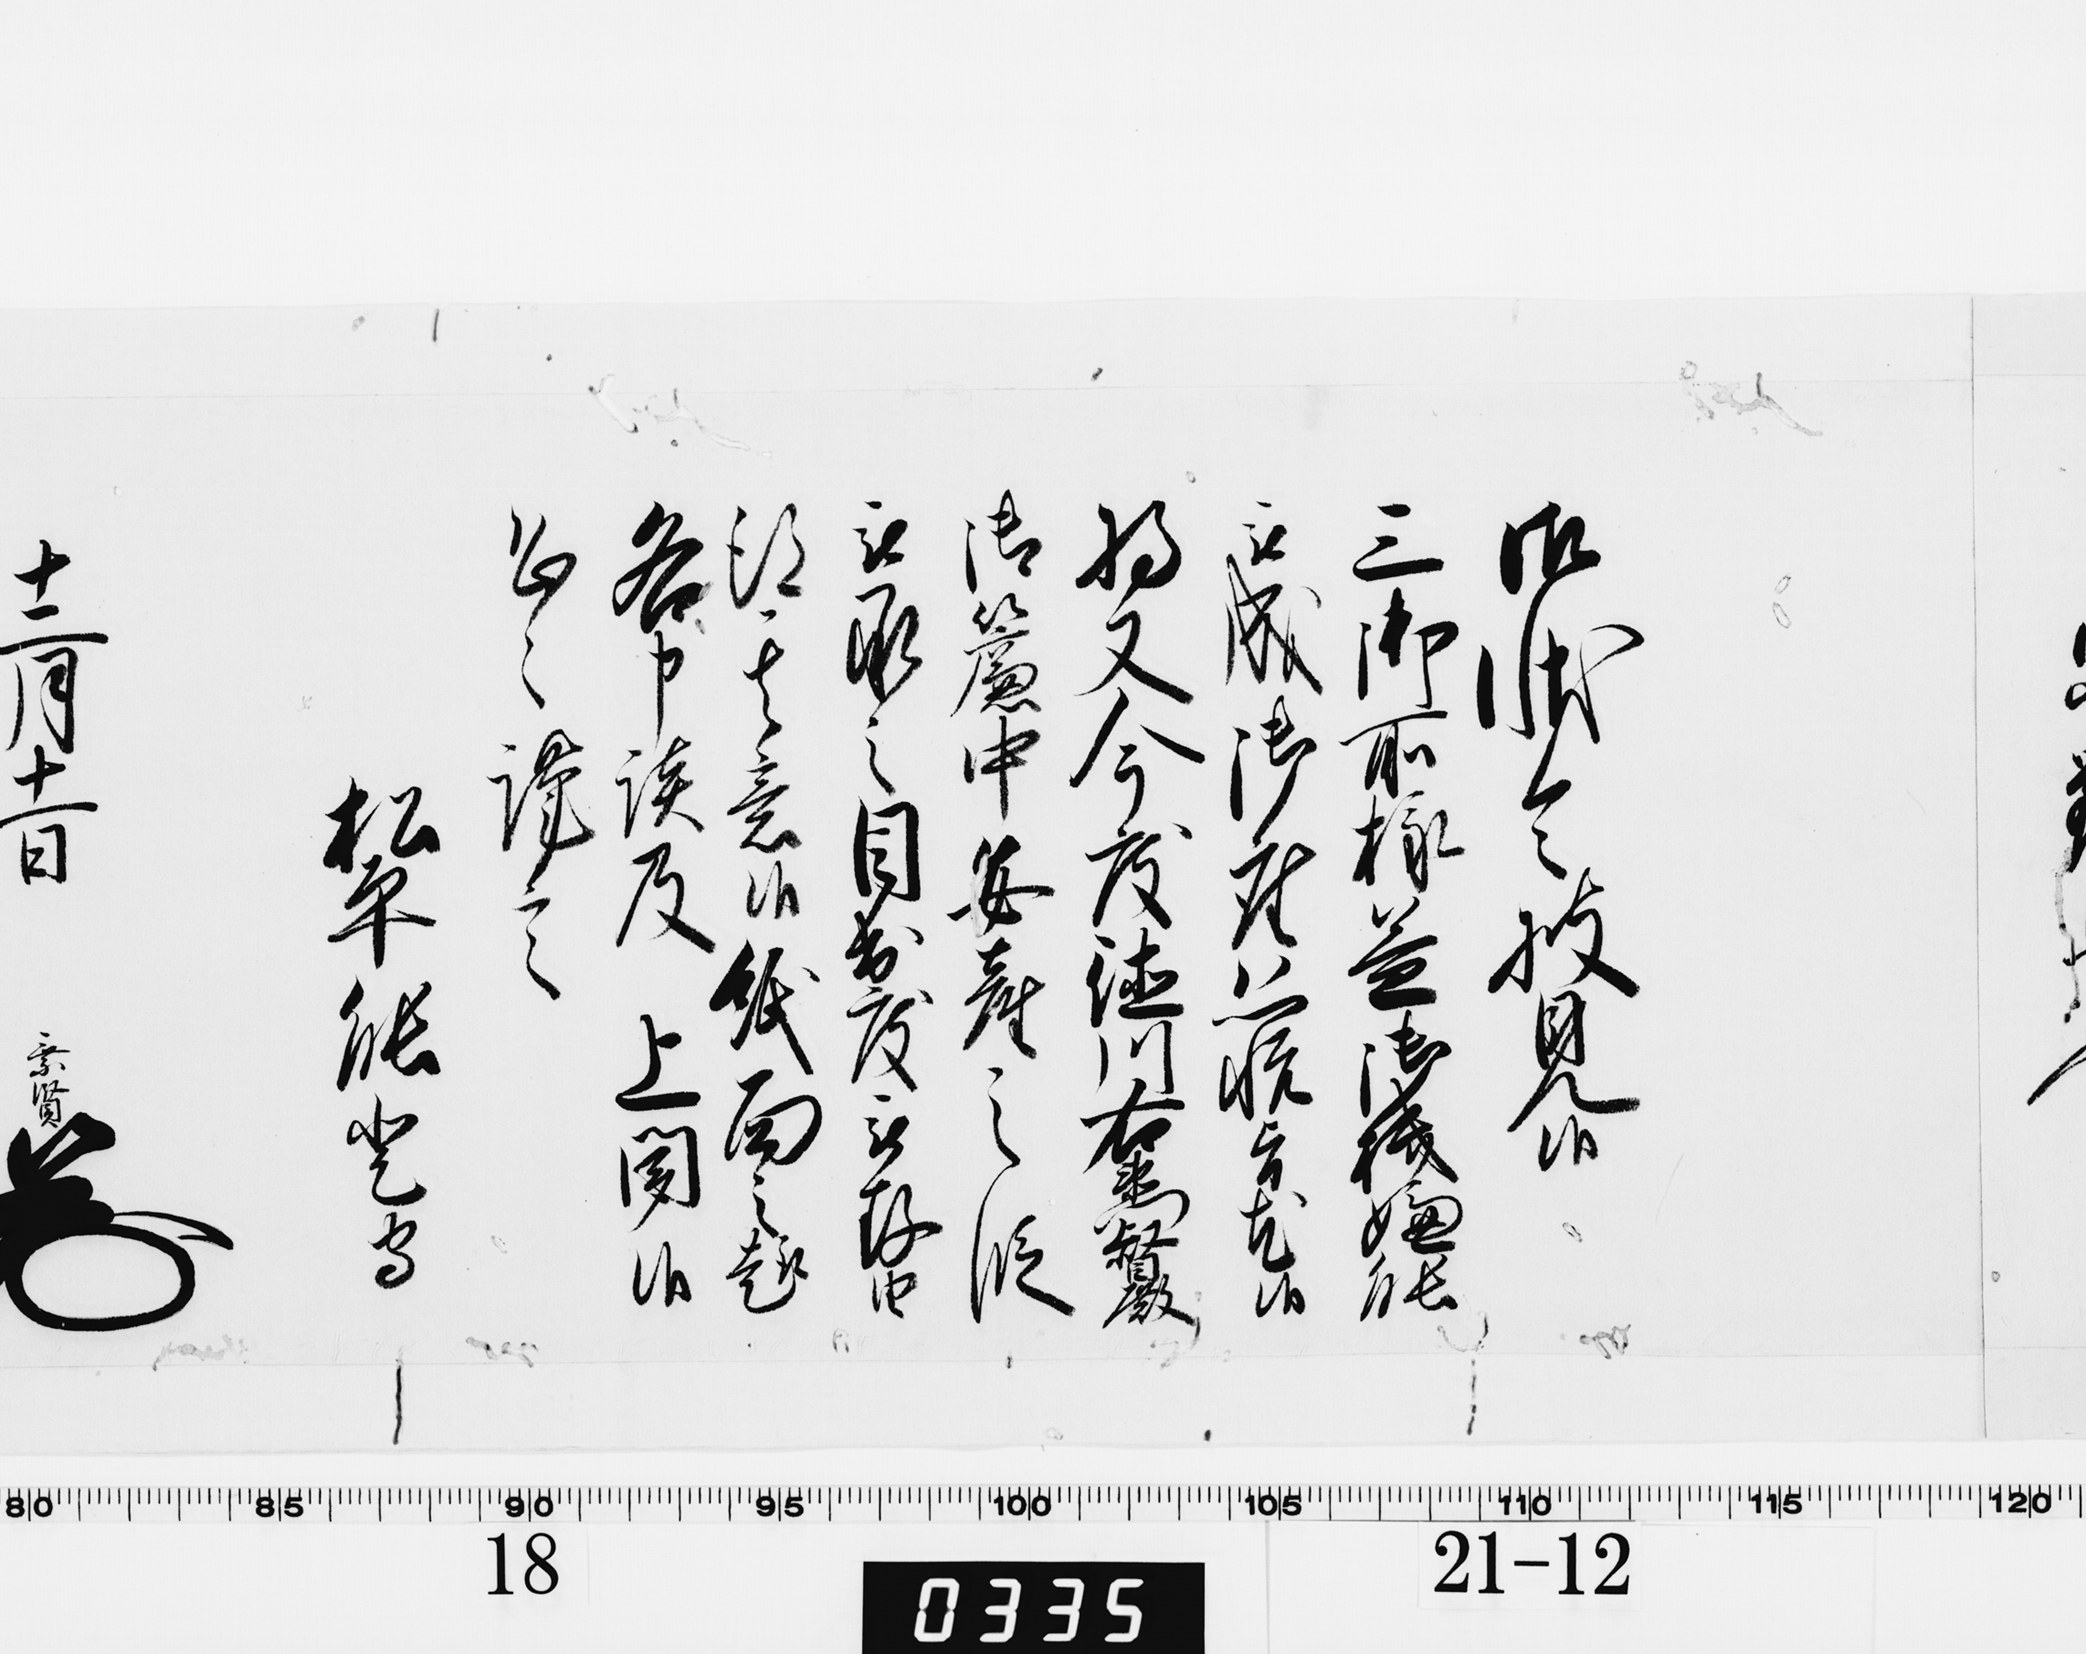 御状令披見候
三御所様益御機嫌能
被成御座恐悦旨尤候
将又今度徳川右衛門督殿
御簾中安産之段
被承之目出度被存由
得其意候紙面之趣
各申談及 上聞候
恐々謹言
松平能登守
十二月十一日
乗賢
80 85 90 95 100 105 110 115 120
18
0335
21-12